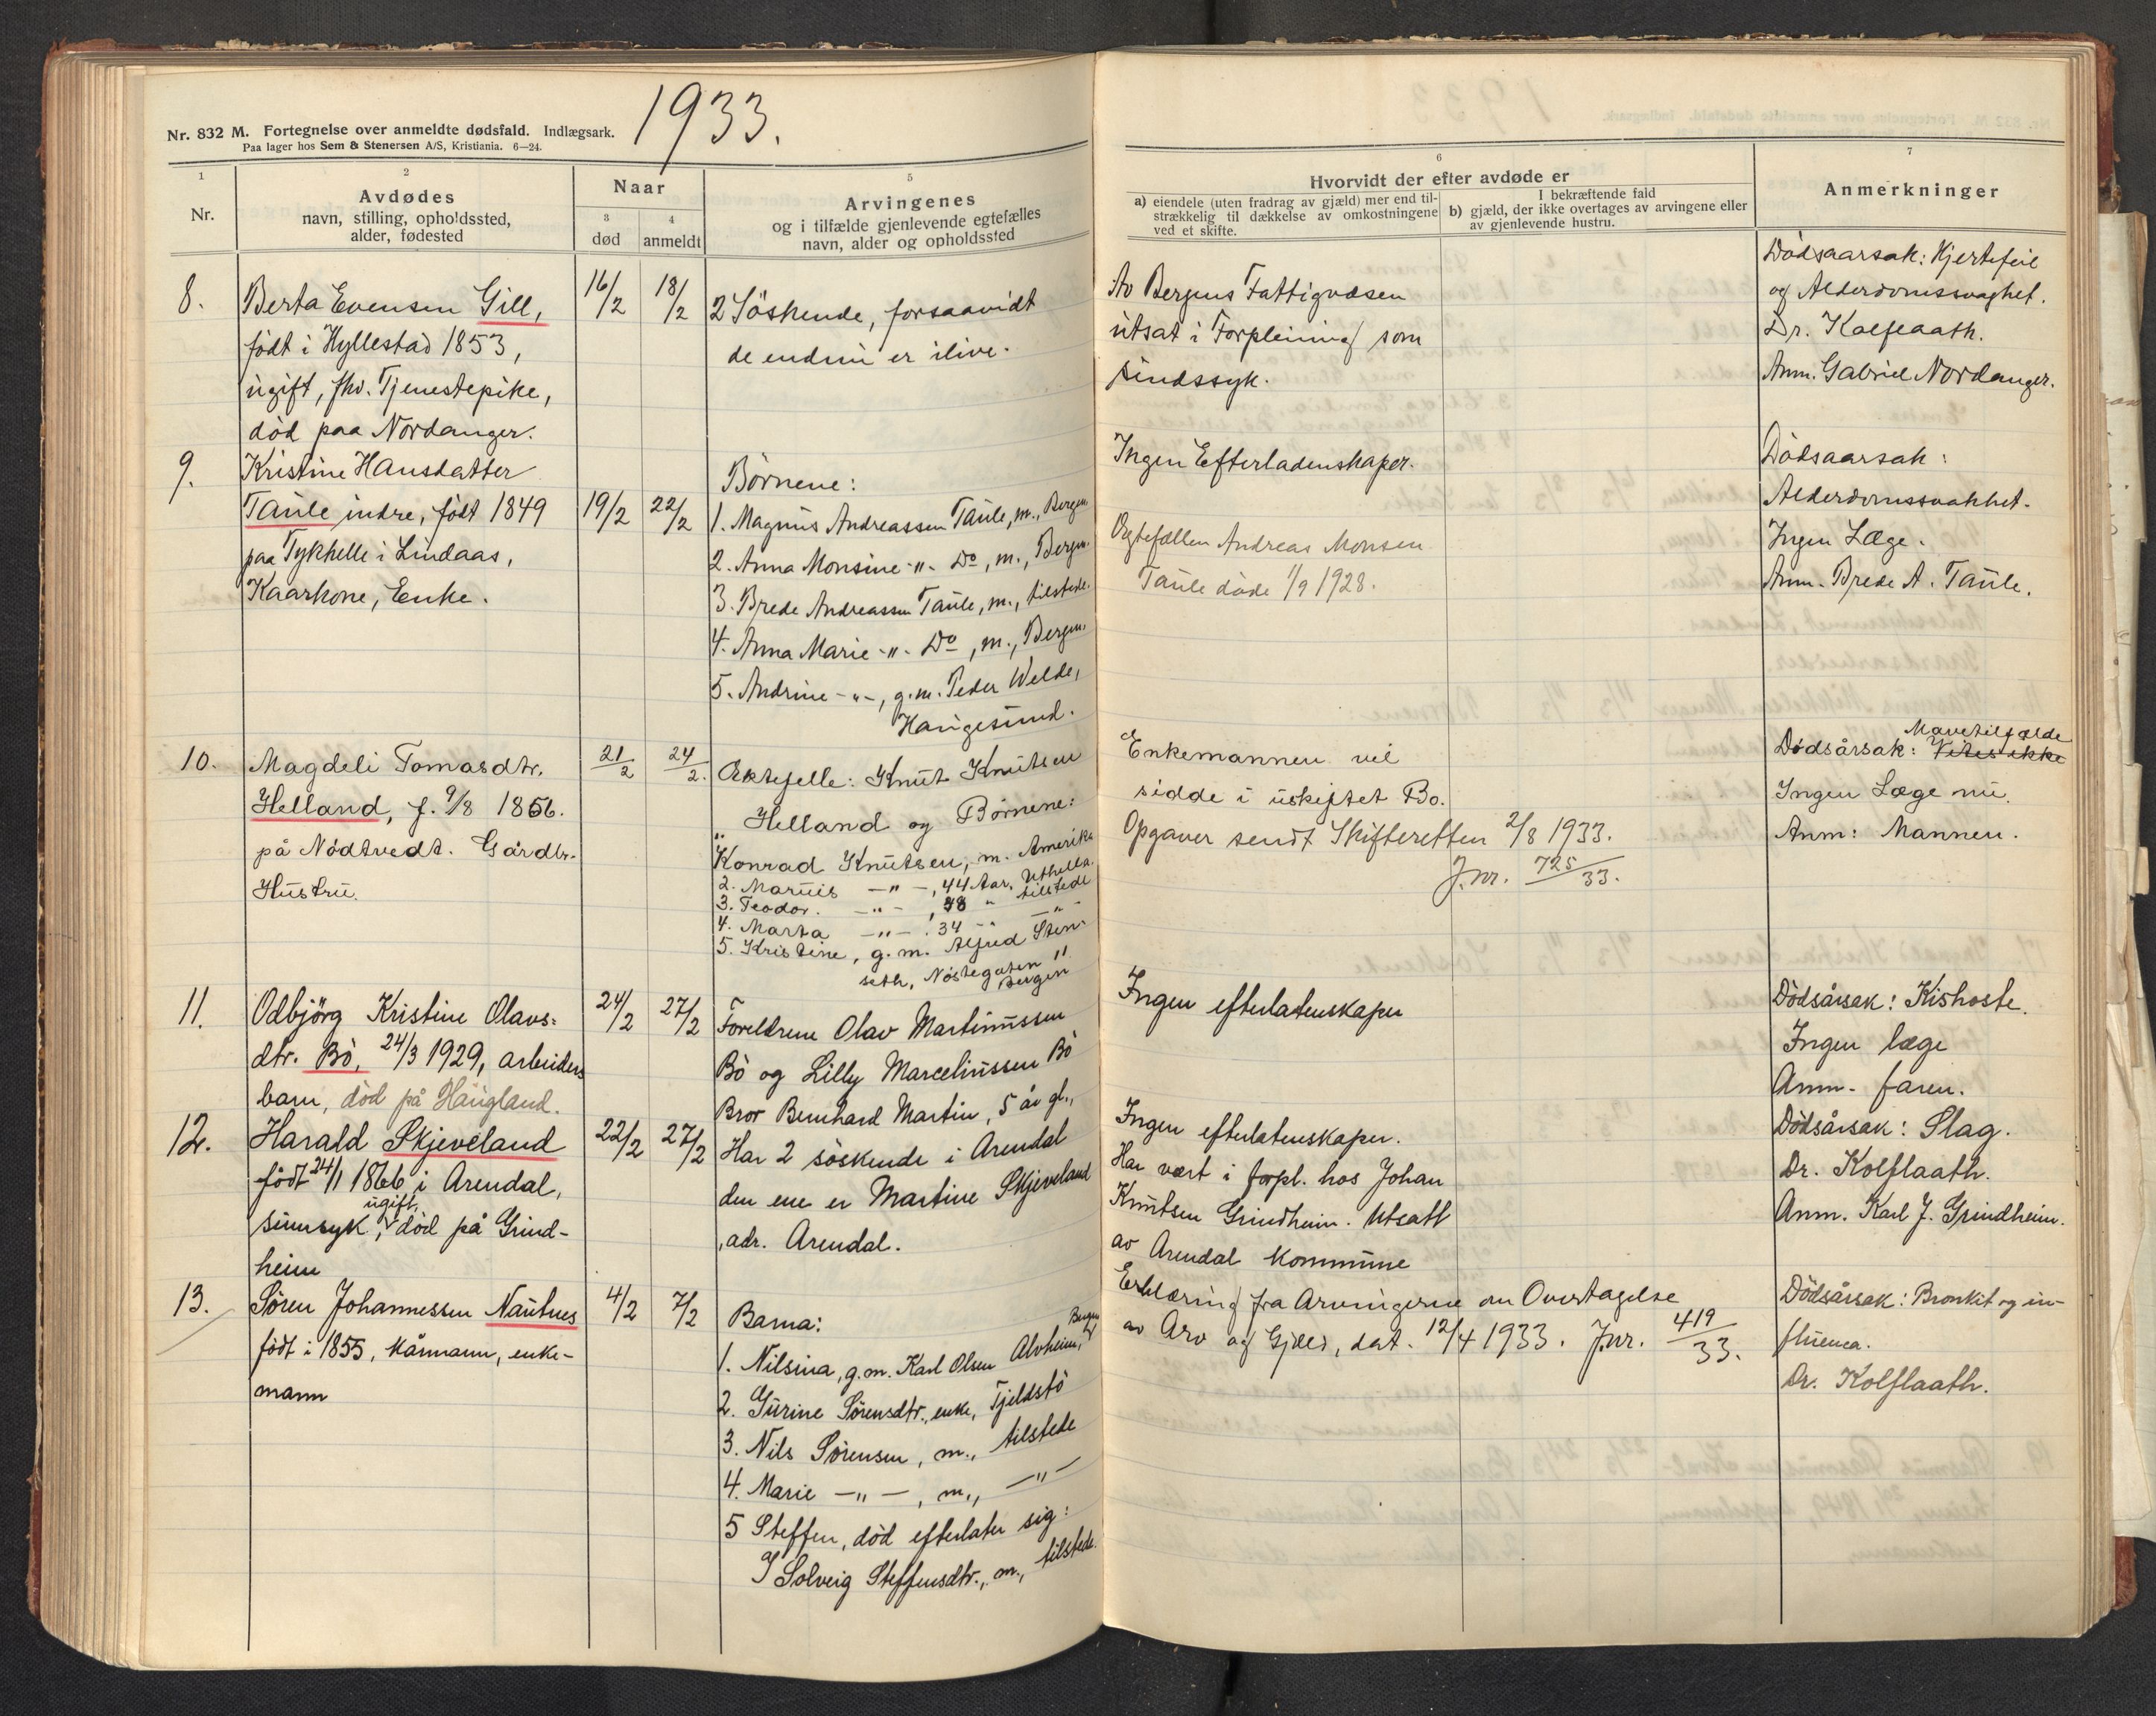 1933.
Nr. 832 M. Fortegnelse over anmeldte dødsfald. Indlægsark.
Paa lager hos Sem & Stenersen A/S, Kristiania. 6—24.
1
Nr.
2
Avdødes
navn, stilling, opholdssted,
alder, fødested
Naar
3
død
4
anmeldt
5
Arvingenes
og i tilfælde gjenlevende egtefælles
navn, alder og opholdssted
6
Hvorvidt der efter avdøde er
a) eiendele (uten fradrag av gjæld) mer end til-
strækkelig til dækkelse av omkostningene
ved et skifte.
I bekræftende fald
b) gjæld, der ikke overtages av arvingene eller
av gjenlevende hustru.
7
Anmerkninger
8.
Berta Evensen Gill,
født i Hyllestad 1853,
ugift, fhv. Tjenestepike,
død paa Nordanger.
16/2
18/2
2 Söskende, forsaavidt
de endnu er ilive.
Av Bergens Fattigvæsen
utsat i Forpleining som
sindssyk.
Dødsaarsak: Hjertefeil
og Alderdomssvaghet.
Dr. Kolflaath.
Anm. Gabriel Nordanger.
9.
Kristine Hansdatter
Taule indre, født 1849
paa Tykhelle i Lindaas,
Kaarkone, Enke.
19/2
22/2
Börnene:
1. Magnus Andreassen Taule, m., Bergen
2. Anna Monsine -"- Do, m., Bergen.
3. Brede Andreassen Taule, m., tilstede.
4. Anna Marie -"- Do, m., Bergen.
5. Andrine -"-, g.m. Peder Welde,
Haugesund.
Ingen Efterladenskaper.
Ægtefællen Andreas Monsen
Taule døde 1/9 1928.
Dødsaarsak:
Alderdomssvakhet.
Ingen Læge.
Anm. Brede A. Taule.
10.
Magdeli Tomasdtr.
Helland, f. 9/8 1856.
på Nödtvedt. Gårdbr.
Hustru.
21/2
24/2.
Ektefelle: Knut Knutsen
Helland og Börnene:
Konrad Knutsen, m. Amerika
2. Marius -"-, 44 Aar, Uthella.
3. Teodor. -"-, 38 " tilstede
4. Marta -"-. 34 -" -"-
5. Kristine, g.m. Alfred Sten-
seth, Nöstegaten 11
Bergen
Enkemannen vil
sidde i uskiftet Bo.
Opgaver sendt Skifteretten 2/8 1933.
J.nr. 725/33.
Mavetilfælde
Dødsårsak: Vites ikke
Ingen Læge nu.
Anm: Mannen.
11.
Odbjörg Kristine Olavs-
dtr. Bö, 24/3 1929, arbeiders
barn, död på Haugland.
24/2
27/2
Foreldrene Olav Martinussen
Bö og Lilly Marcelinussen Bö
Bror Bernhard Martin, 5 år gl.,
Ingen efterlatenskaper
Dödsårsak: Kikhoste.
Ingen læge
Anm. faren.
12.
Harald Skjeveland
født 24/1 1866 i Arendal,
ugift,
sinnsyk, död på Grind-
heim
22/2
27/2
Har 2 söskende i Arendal
den ene er Martine Skjeveland
, adr. Arendal.
Ingen efterlatenskaper.
Har vært i forpl. hos Johan
Knutsen Grindheim. Utsatt
av Arendal kommune
Dödsårsak: Slag.
Dr. Kolflaath.
Anm. Karl J. Grindheim.
13.
Sören Johannessen Nautnes
född i 1855, kårmann, enke-
mann
4/2
7/2
Barna:
1. Nilsina, g.m. Karl Olsen Alvheim, Bergen
2. Gurine Sörensdtr., enke, Tjeldstö
3. Nils Sörensen, m., tilstede
4. Marie -"-, m., -"-
5 Steffen, död efterlater sig:
Solveig Steffensdtr., m., tilstede.
Erklæring fra Arvingerne om Overtagelse
av Arv og Gjeld, dat. 12/4 1933. J.nr. 419/33.
Dödsårsak: Bronkit og in-
fluenca.
Dr. Kolflaath.